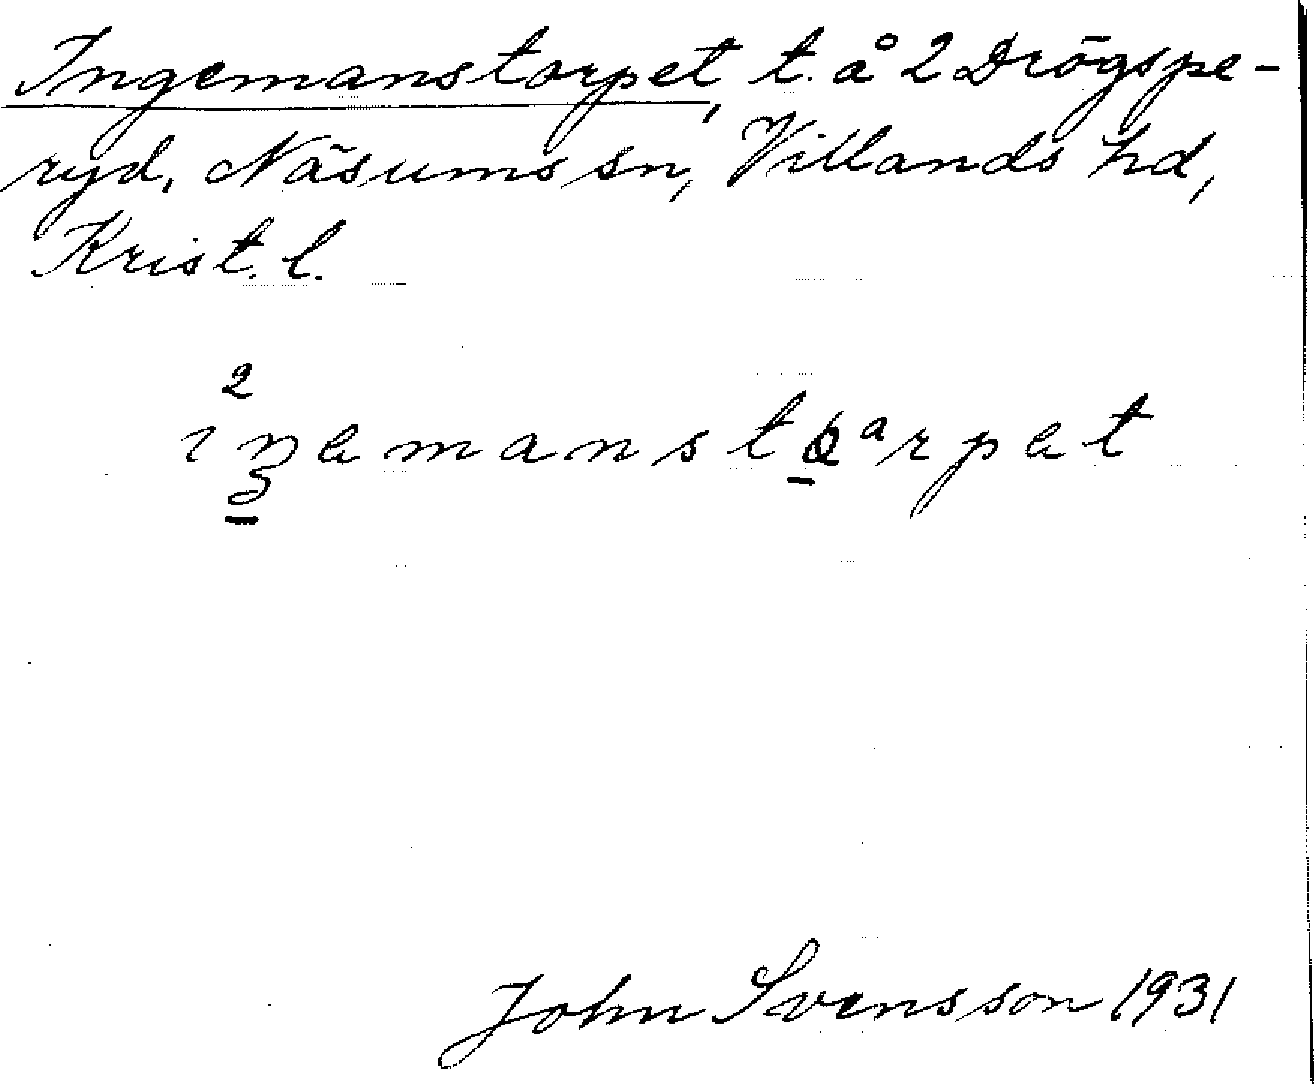 Ingemanstorpet, t. å 2 Drögspe-
ryd, Näsums sn, Villands hd,
Krist. l.
2
iŋemanstɒarpet
John Svensson 1931